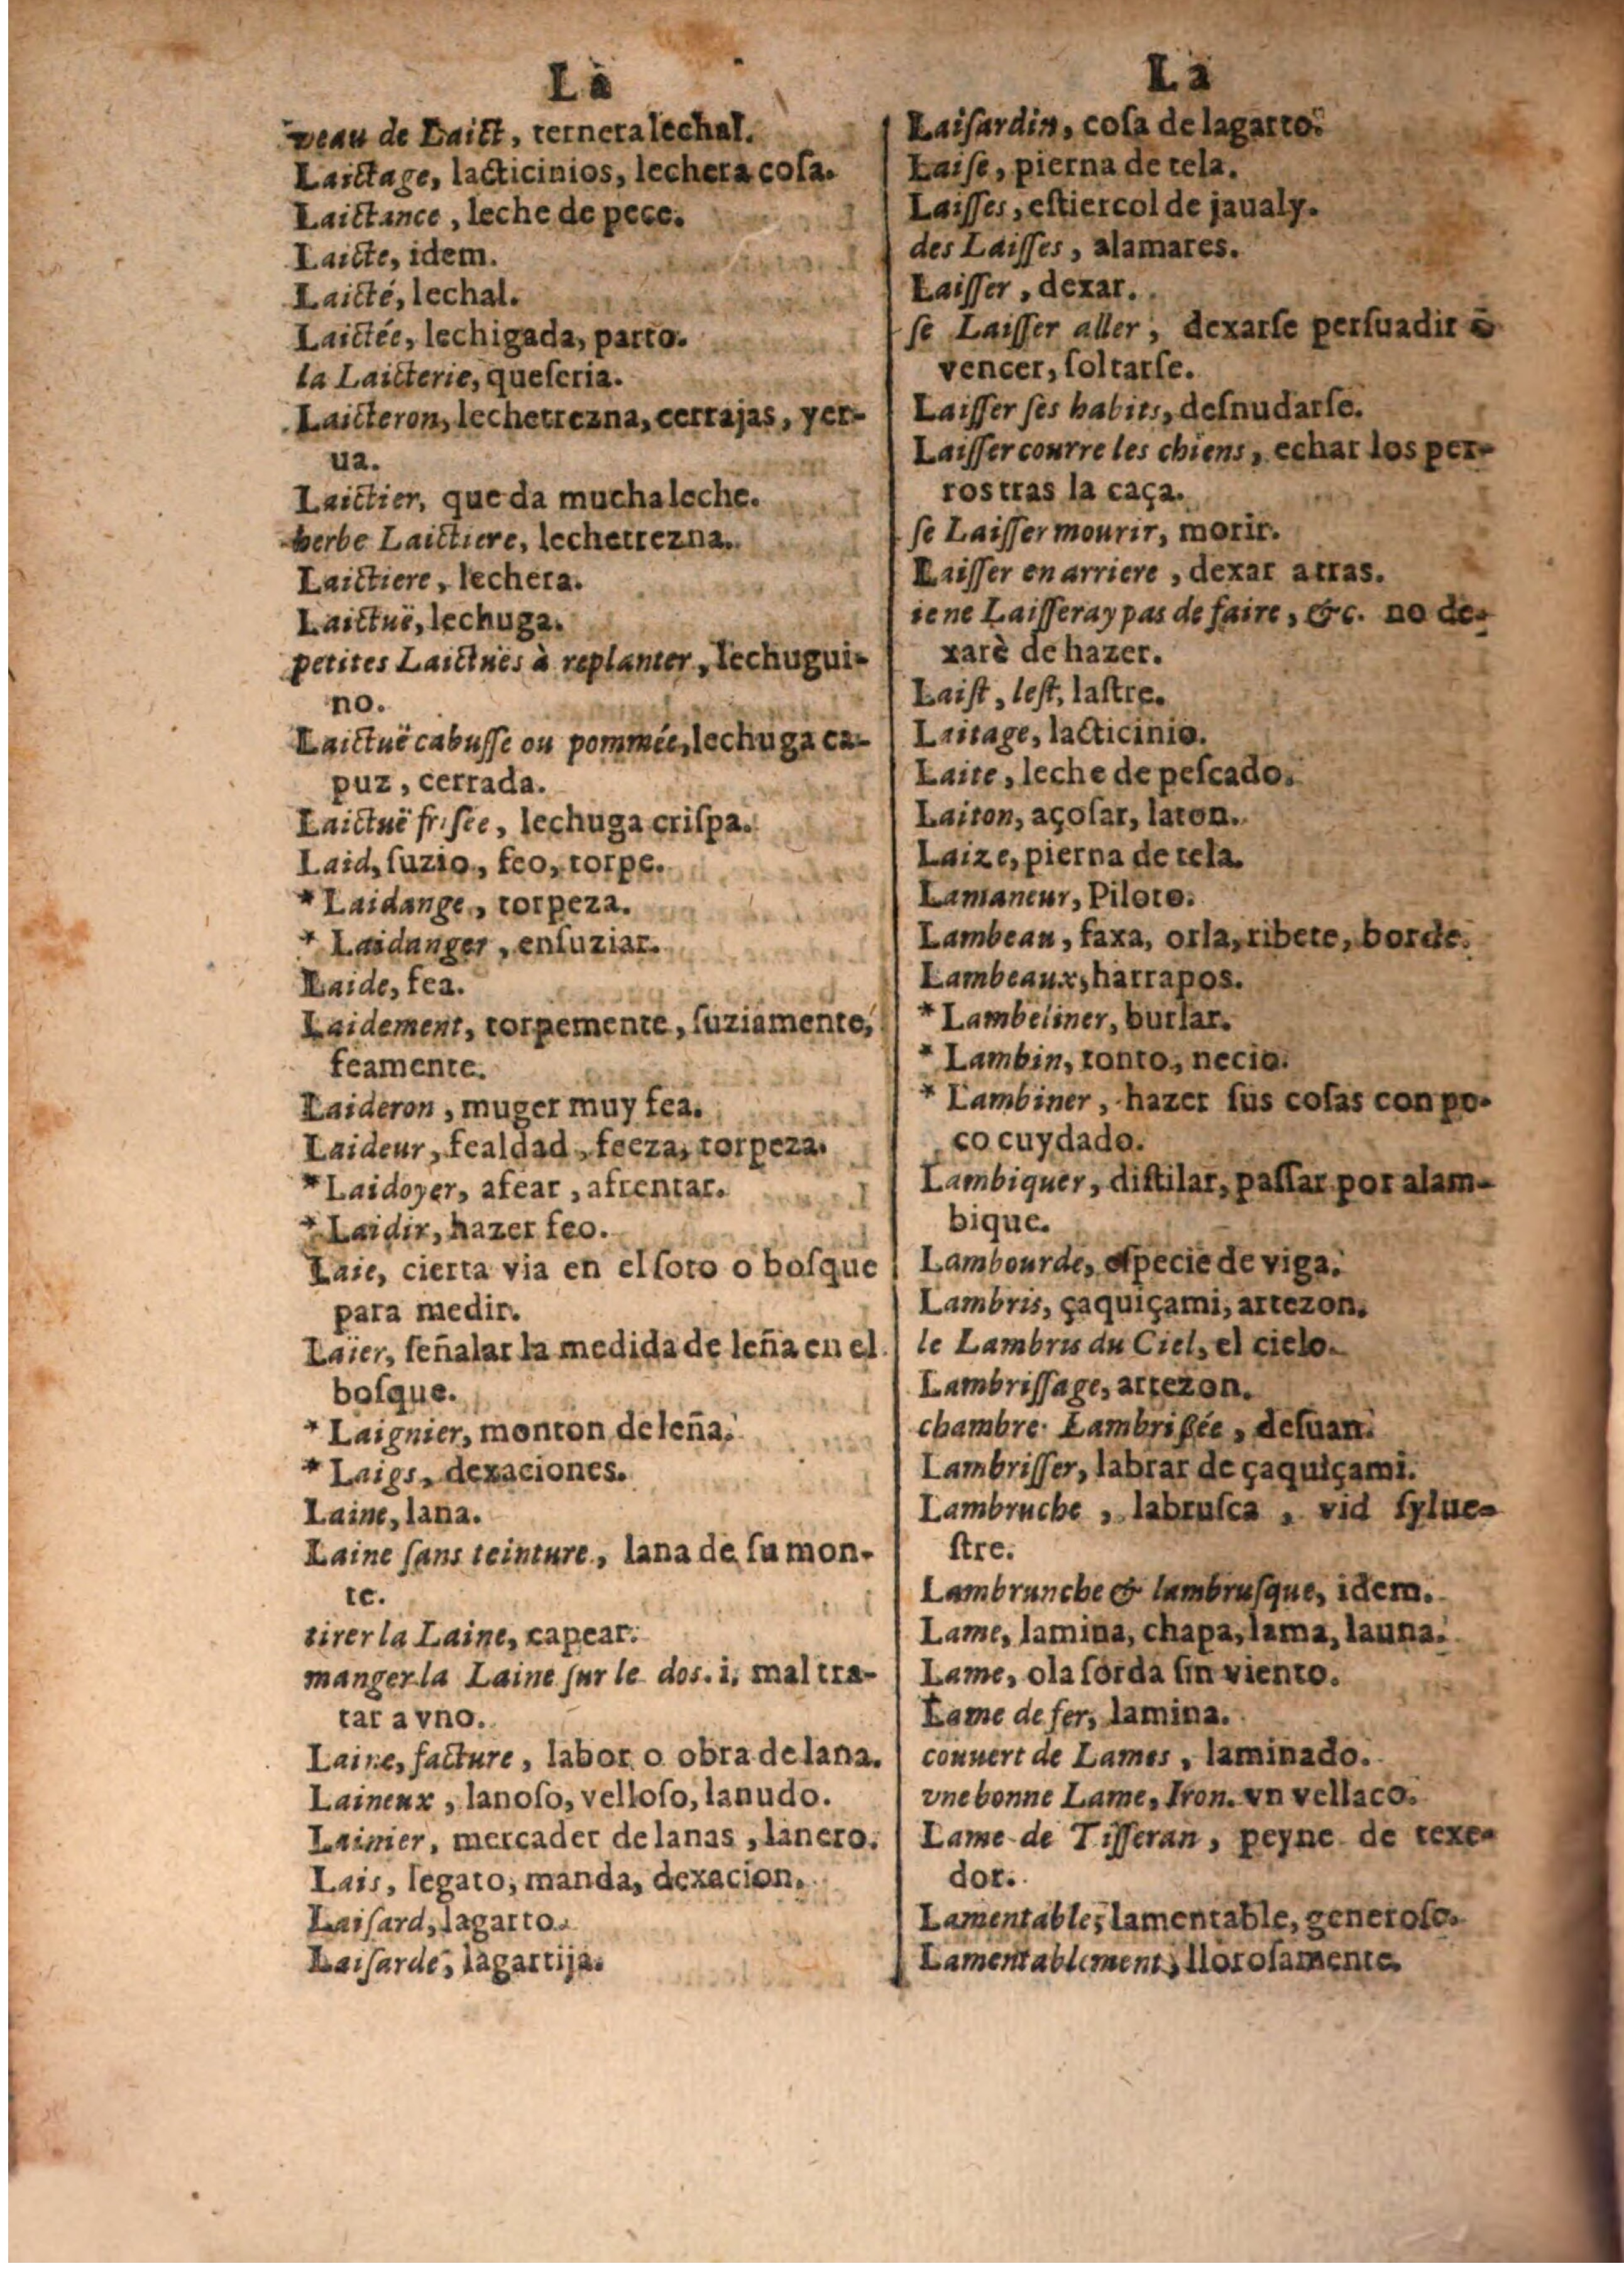 La
veau de Laict, ternera lechal.
Laictage, lacticinios, lechera coſa.
Laictance, leche de pece.
Laicte, idem.
Laicté, lechal.
Laictée, lechigada, parto.
la Laicterie, queſeria.
Laicteron, lechetrezna, cerrajas, yer-
ua.
Laictier, que da mucha leche.
herbe Laictiere, lechetrezna.
Laictiere, lechera.
Laictuë, lechuga.
petites Laictuës à replanter, lechugui-
no.
Laictuë cabuſſe ou pommée, lechuga ca-
puz, cerrada.
Laictuë friſée, lechuga criſpa.
Laid, ſuzio, feo, torpe.
* Laidange, torpeza.
* Laidanger, enſuziar.
Laide, fea.
Laidement, torpemente, ſuziamente,
feamente.
Laideron, muger muy fea.
Laideur, fealdad, feeza, torpeza.
* Laidoyer, afear, afrentar.
* Laidir, hazer feo.
Laie, cierta via en el ſoto o boſque
para medir.
Laier, ſeñalar la medida de leña en el
boſque.
* Laignier, monton de leña.
* Laigs, dexaciones.
Laine, lana.
Laine ſans teinture, lana de ſu mon-
te.
tirer la Laine, capear.
manger la Laine ſur le dos. i. mal tra-
tar a vno.
Laine, facture, labor o obra de lana.
Laineux, lanoſo, velloſo, lanudo.
Lainier, mercader de lanas, lanero.
Lais, legato, manda, dexacion.
Laiſard, lagarto.
Laiſarde, lagartija.
La
Laiſardin, coſa de lagarto.
Laiſe, pierna de tela.
Laiſſes, eſtiercol de jaualy.
des Laiſſes, alamares.
Laiſſer, dexar.
ſe Laiſſer aller, dexarſe perſuadir ò
vencer, ſoltarſe.
Laiſſer ſes habits, deſnudarſe.
Laiſſer courre les chiens, echar los per-
ros tras la caça.
ſe Laiſſer mourir, morir.
Laiſſer en arriere, dexar atras.
ie ne Laiſſeray pas de faire, &c. no de-
xarè de hazer.
Laiſt, leſt, laſtre.
Laitage, lacticinio.
Laite, leche de peſcado.
Laiton, açofar, laton.
Laize, pierna de tela.
Lamaneur, Piloto.
Lambeau, faxa, orla, ribete, borde.
Lambeaux, harrapos.
* Lambeliner, burlar.
* Lambin, tonto, necio.
* Lambiner, hazer ſus coſas con po-
co cuydado.
Lambiquer, diſtilar, paſſar por alam-
bique.
Lambourde, eſpecie de viga.
Lambris, çaquiçami, artezon.
le Lambris du Ciel, el cielo.
Lambriſſage, artezon.
chambre Lambriſſée, deſuan.
Lambriſſer, labrar de çaquiçami.
Lambruche, labruſca, vid ſylue-
ſtre.
Lambrunche & lambruſque, idem.
Lame, lamina, chapa, lama, launa.
Lame, ola ſorda ſin viento.
Lame de fer, lamina.
couuert de Lames, laminado.
vne bonne Lame, Iron. vn vellaco.
Lame de Tiſſeran, peyne de texe-
dor.
Lamentable, lamentable, generoſo.
Lamentablement, lloroſamente.